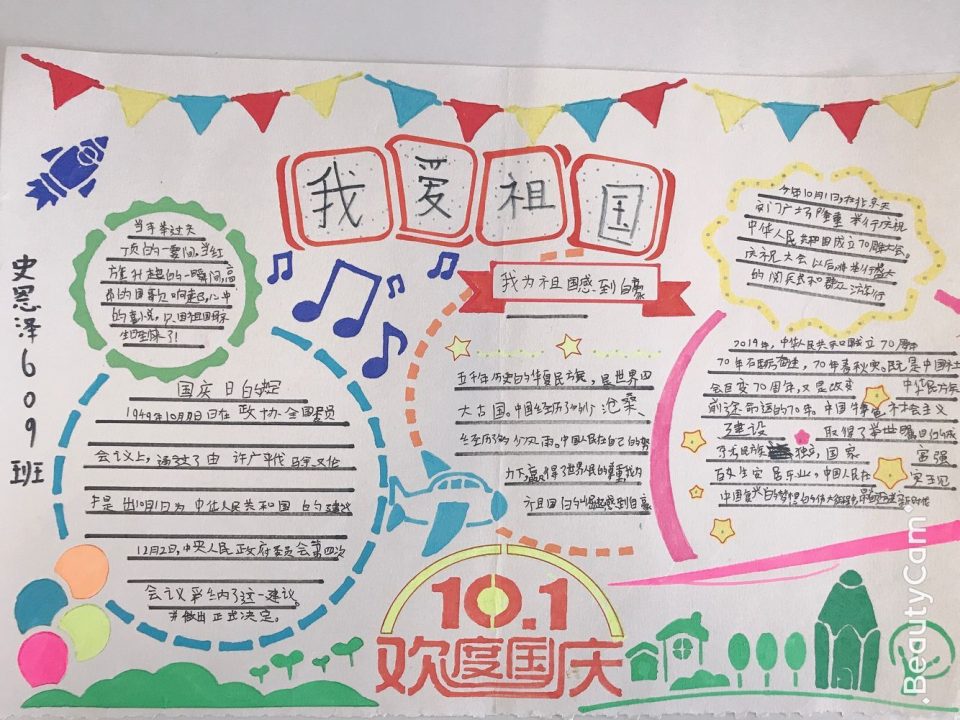 我爱祖国
史恩泽609班
当手举过头
顶的一霎间,当红
旗升起的一瞬间,高
昂的国歌响起,心中
的喜悦,只因祖国
我为祖国感到自豪
今年10月1日,在北京天
安门广场隆重举行庆祝
中华人民共和国成立70周年大会。
庆祝大会以后,将举行盛大
的阅兵式和群众游行
国庆日的
1949年10月9日在政协全国委员
会议上,通过了由许广平代马叙伦
于是出10月1日为中华人民共和国的建议
12月2日,中央人民政府委员会第四次
会议采纳了这一建议
并做出正式决定。
五千年历史的华夏民族,是世界四
大古国。中国经历了沧桑、
经历了风雨。中国人民在自己的努
力下赢得了世界人民的尊重我为
祖国的崛起感到自豪
2019年,中华人民共和国成立70周年
70年春秋史,既是中国社
会巨变70周年,又是改变中华民族
前途命运的70年。中国特色社会主义
建设取得了举世瞩目的成
独立,国家富强
中国人民在
10.1
欢度国庆
BeautyCam